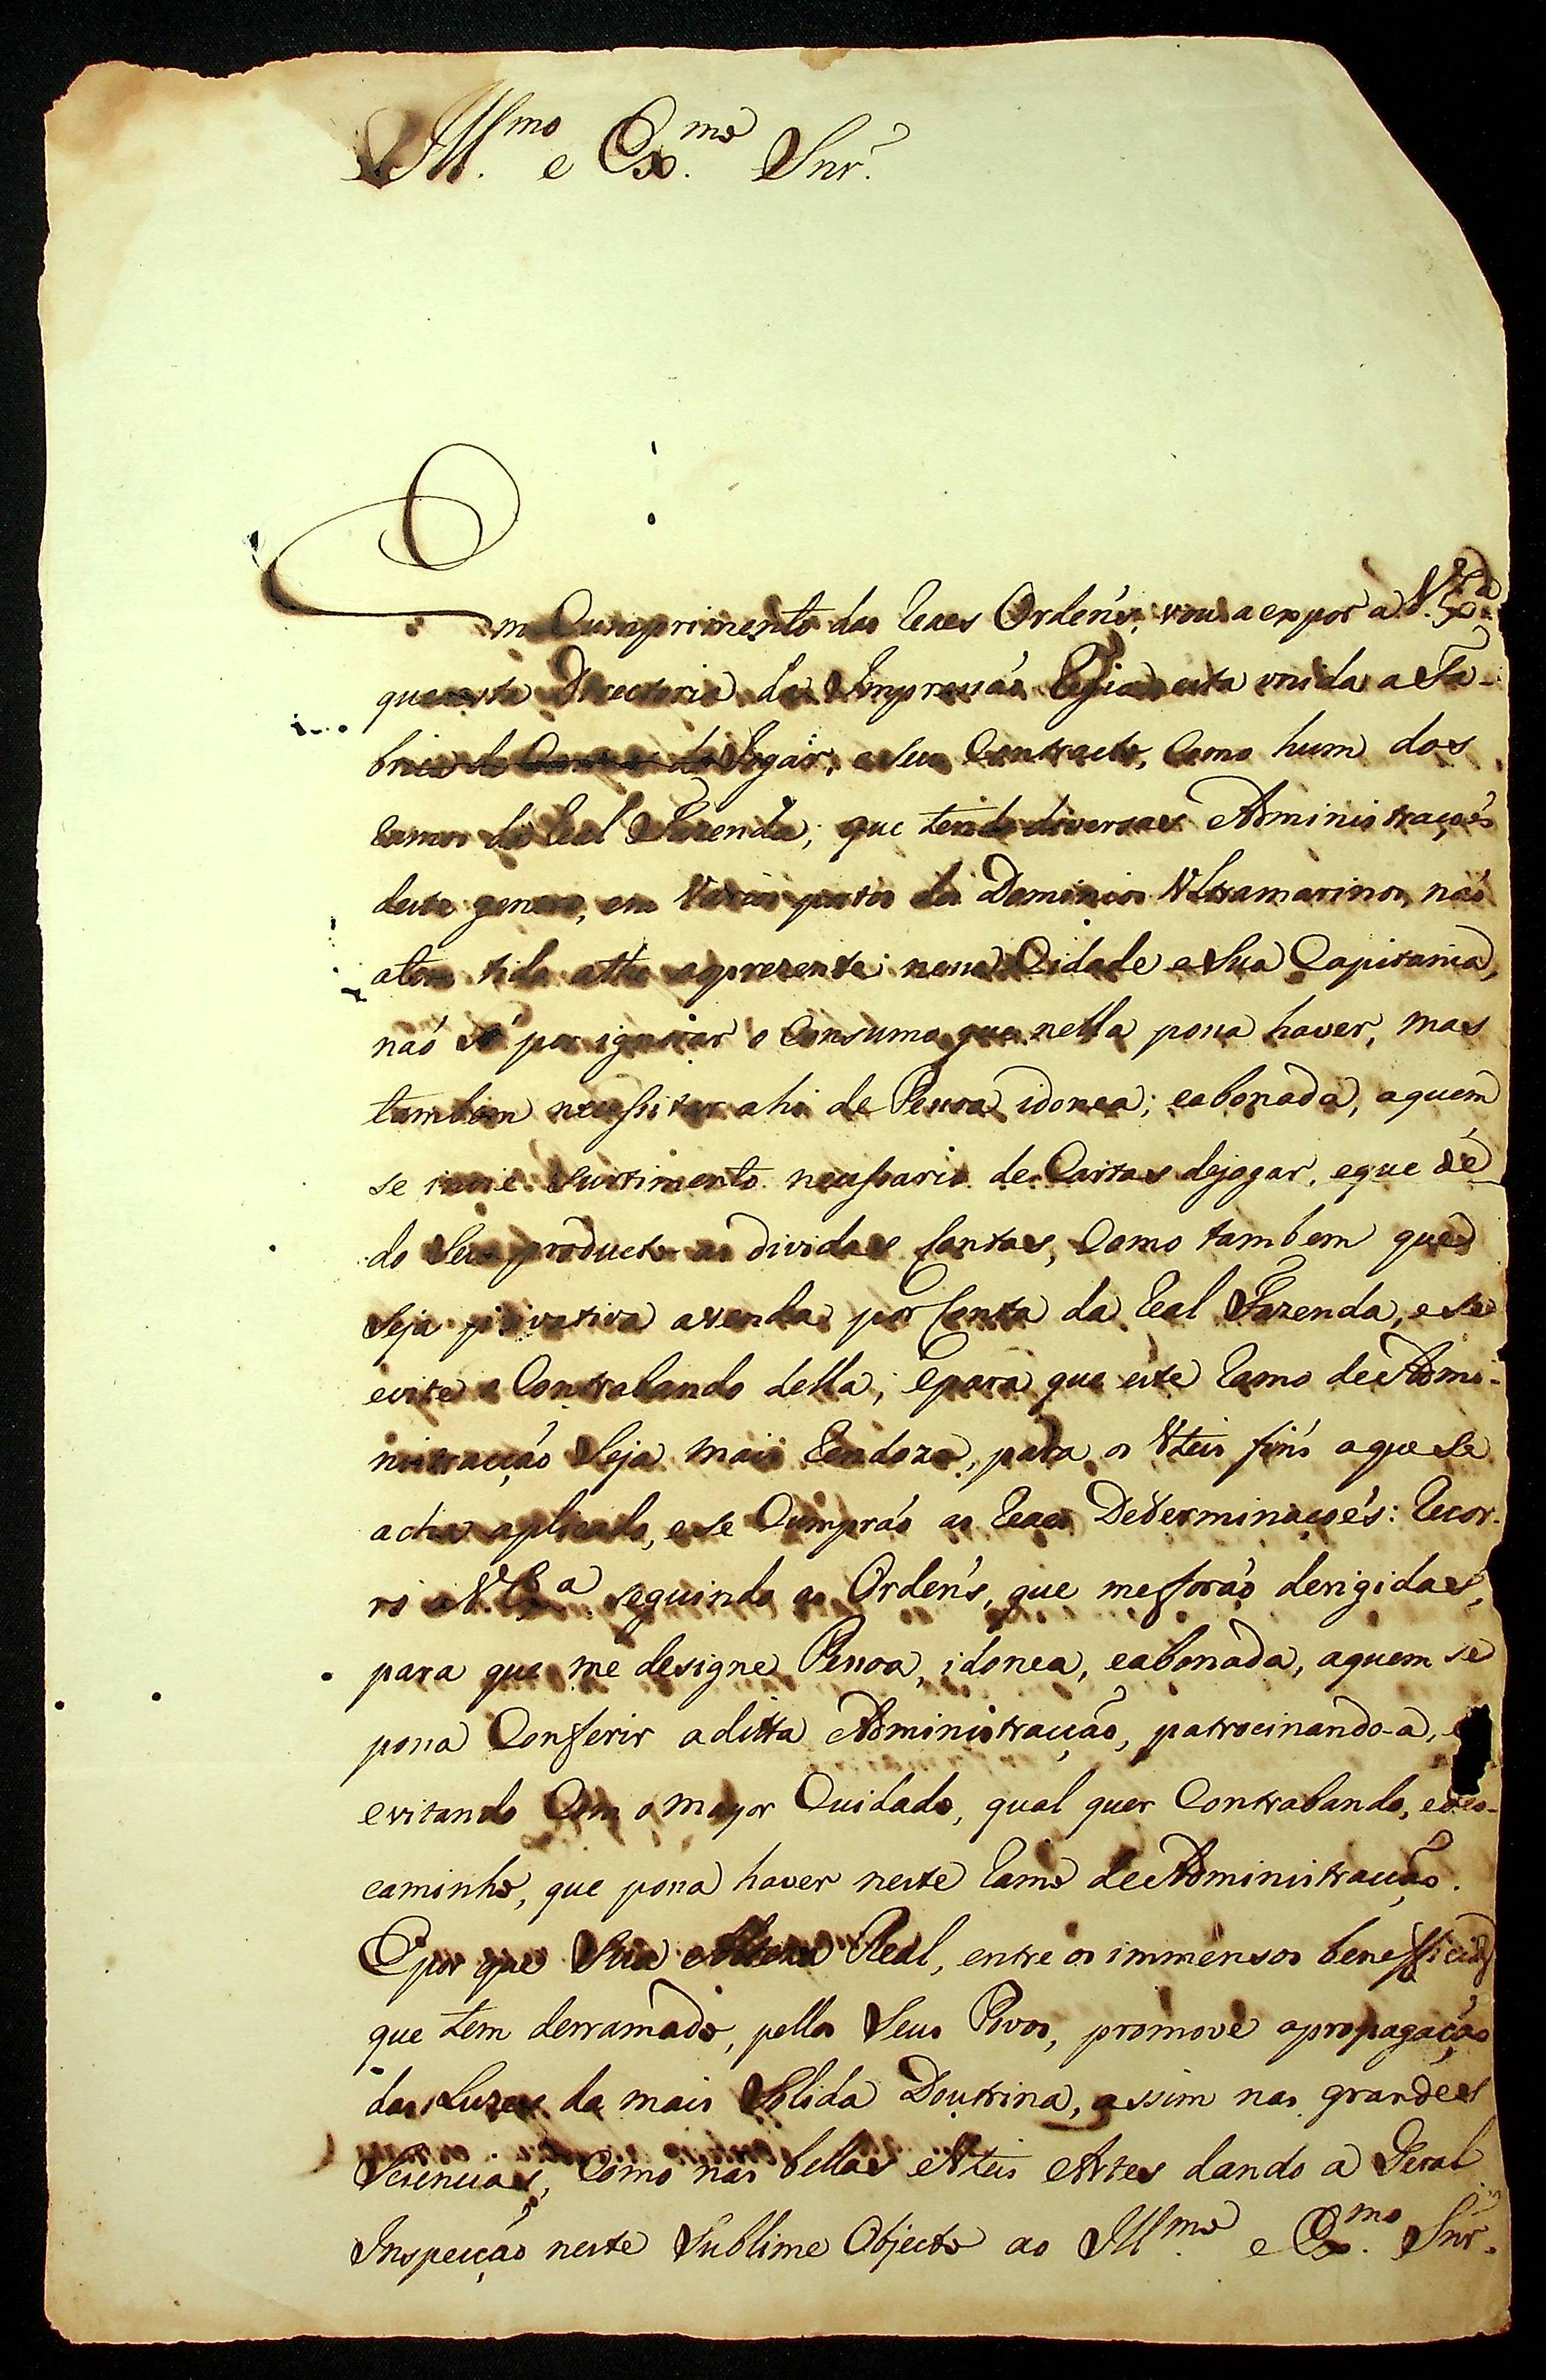 Ill.mo e Ex.mo Snr.
Em Cumprimento das Reaes Orden's, vou a expor a V. Ex.a
que esta Directoria da Impressaõ Regia esta unida a Fa-
brica de Cartas de Jogar, e seu Contracto, Como hum dos
Ramos da Real Fazenda; que tendo diversas Administraçoẽs
deste genero, em Varios portos dos Dominios Ultramarinos, naõ
a tem tido athe ao prezente nessa Cidade e Sua Capitania,
naõ só por ignorar o Consumo que nella possa haver, mas
tambem necessitar ahi de Pessoa idonea; e abonada, aquem
se envie Surtimento necessario de Cartas dejogar, eque dê
do Seu producto as dividas Contas, Como tambem que
Seja privativa avenda por Conta da Real Fazenda, e se
evite o Contrabando della; Epara que este Ramo de Admi-
nistracçaõ Seja mais Rendozo, para os Uteis fin's aque Se
acha aplicado, e se Cumpraõ as Reaes Determinaçoẽs: Recor-
ro a V. Ex.a seguindo as Orden's, que me foraõ derigidas,
para que me designe Pessoa, idonea, eabonada, aquem se
possa Conferir aditta Administracçaõ, patrocinando-a, e
evitando Com o mayor Cuidado, qual quer Contrabando, edes-
caminho, que possa haver neste Ramo de Administracçaõ.
E por que Sua Alteza Real, entre os immensos benefficios
que tem derramado, pellos Seus Povos, promove apropagaçaõ
das Luzes da mais Solida Doutrina, assim nas grandes
Sciencias, Como nas bellas e Uteis Artes dando a Geral
Inspecçaõ neste Sublime Objecto ao Ill.mo e Ex.mo Snr.